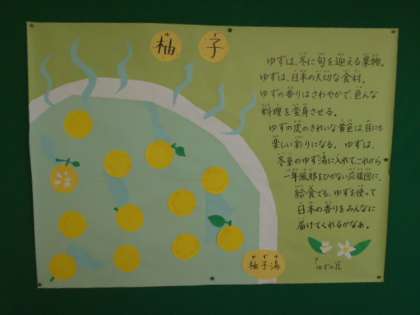 柚子
ゆずは、冬に旬を迎える果物。
ゆずは、日本の大切な食材。
ゆずの香りはさわやかで、色んな
料理を変身させる。
ゆずの皮のきれいな黄色は目にも
楽しい彩りになる。ゆずは、
冬至のゆず湯に入れて、これから
一年風邪をひかない
給食でも、ゆずを使って
日本の香りをみんなに
届けてくれるかなあ。
ゆずの花
柚子湯